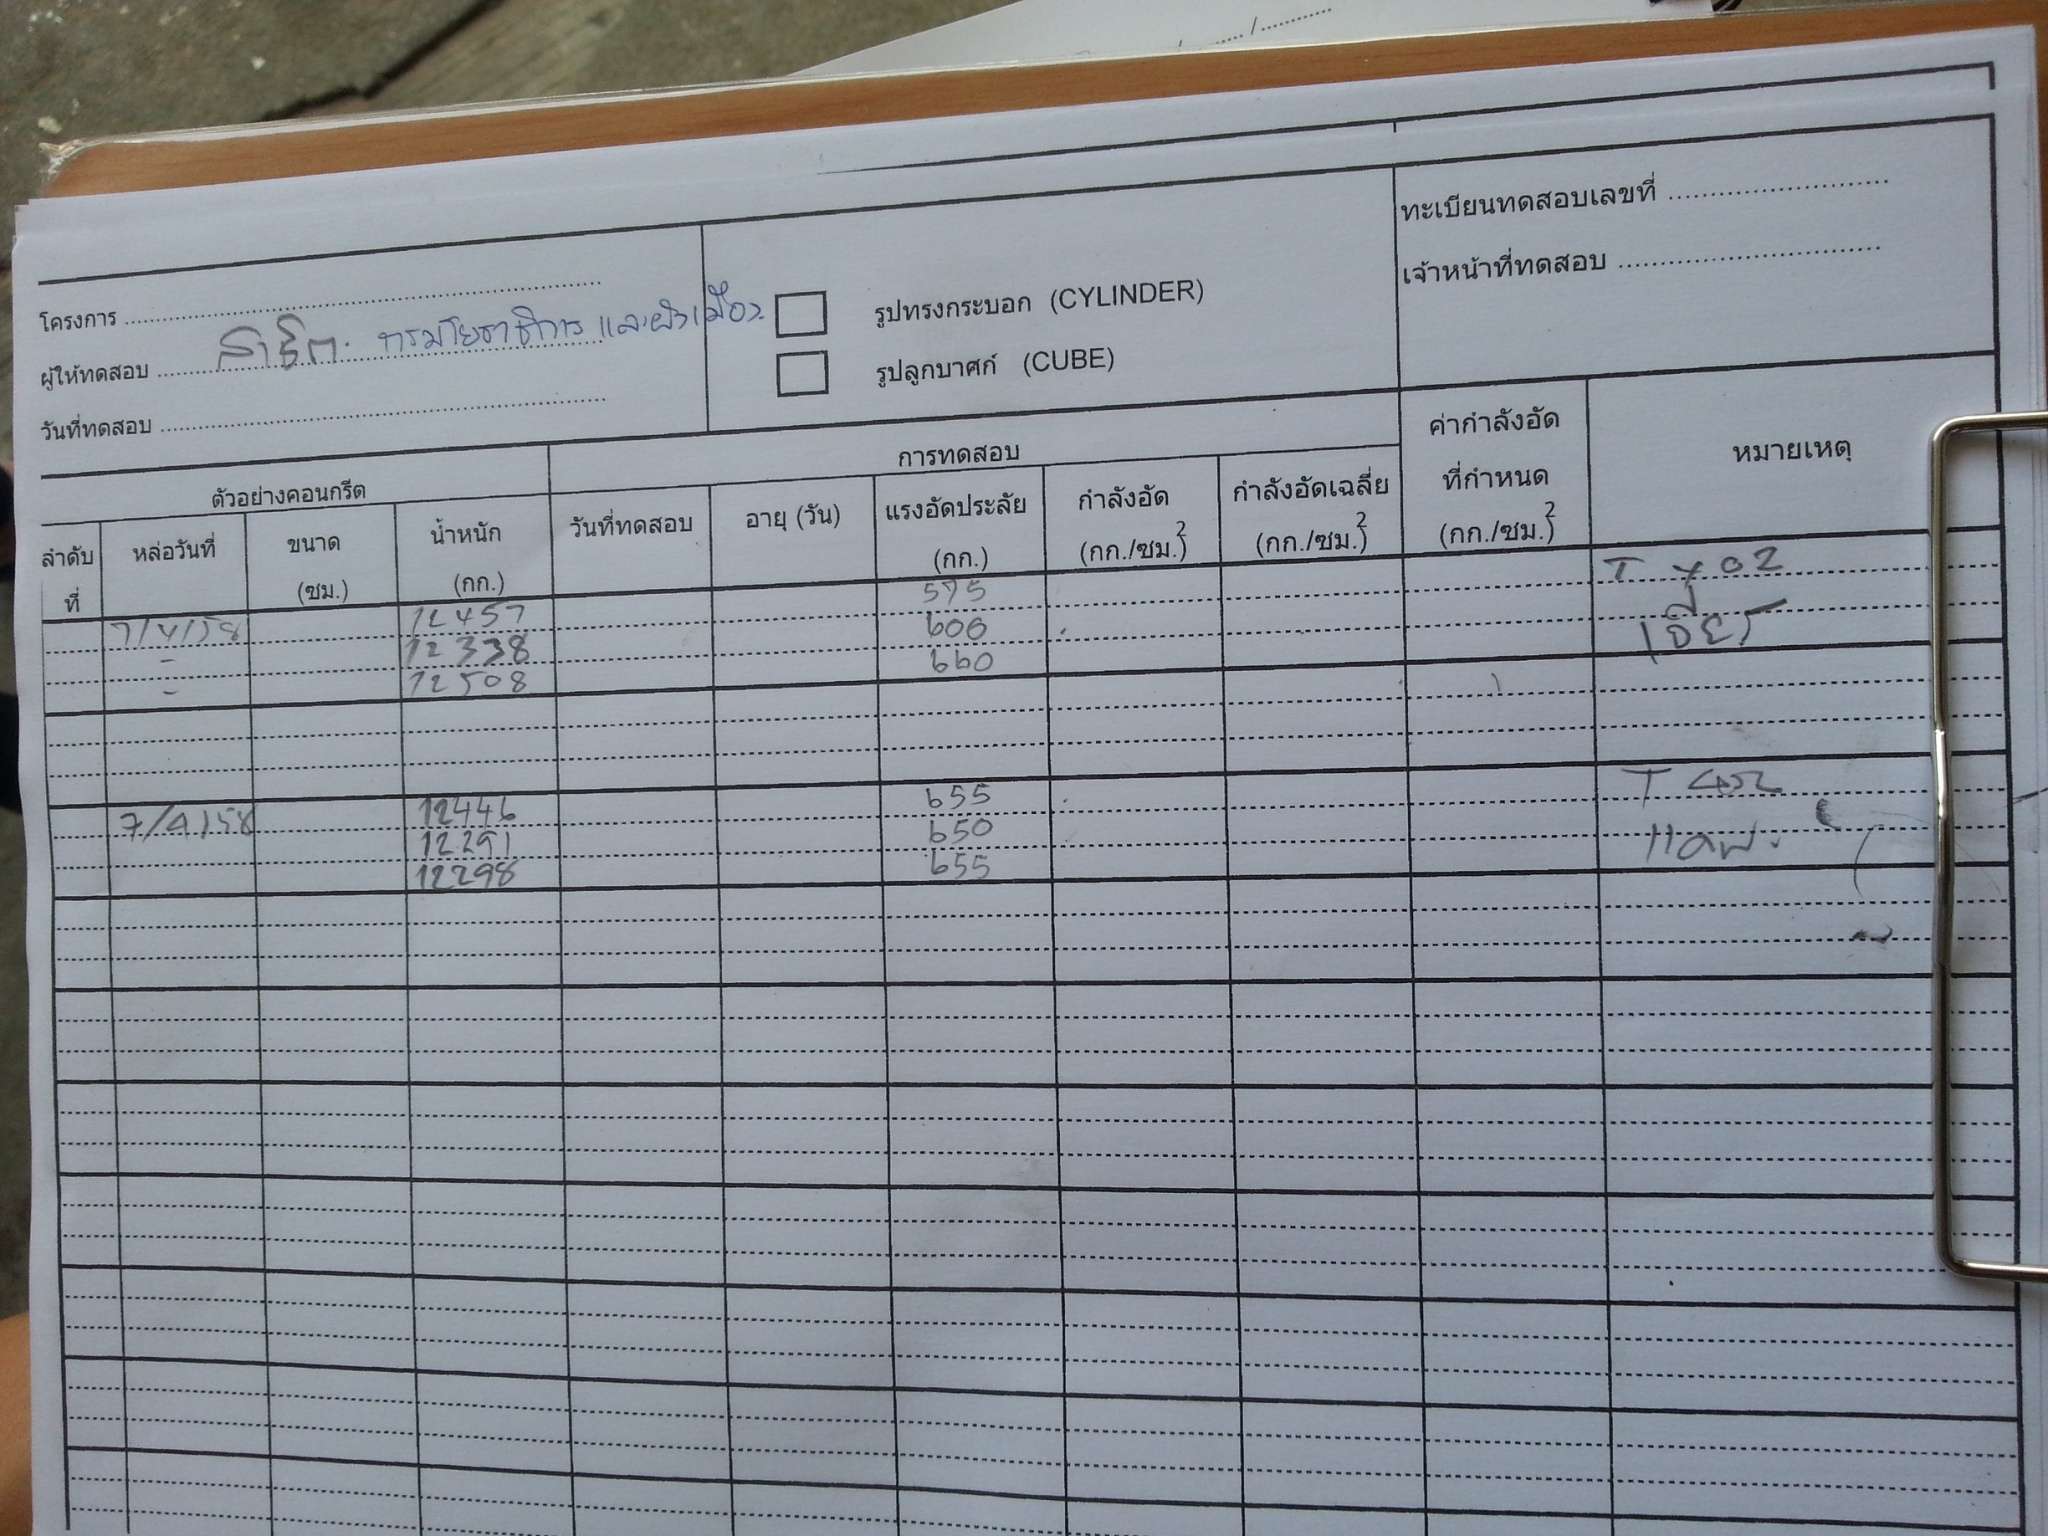 ทะเบียนทดสอบเลขที่ ..............................
เจ้าหน้าที่ทดสอบ ..............................
โครงการ ..............................
ผู้ให้ทดสอบ สาธิต กรมโยธาธิการและผังเมือง
วันที่ทดสอบ ..............................
รูปทรงกระบอก (CYLINDER)
รูปลูกบาศก์ (CUBE)
ตัวอย่างคอนกรีต การทดสอบ ค่ากำลังอัดที่กำหนด (กก./ซม.²) หมายเหตุ
ลำดับที่ หล่อวันที่ ขนาด (ซม.) น้ำหนัก (กก.) วันที่ทดสอบ อายุ (วัน) แรงอัดประลัย (กก.) กำลังอัด (กก./ซม.²) กำลังอัดเฉลี่ย (กก./ซม.²)
7/4/58 12457 575 T 402
- 12338 600
- 12508 660
7/4/58 12446 655 T 402
12291 650
12298 655